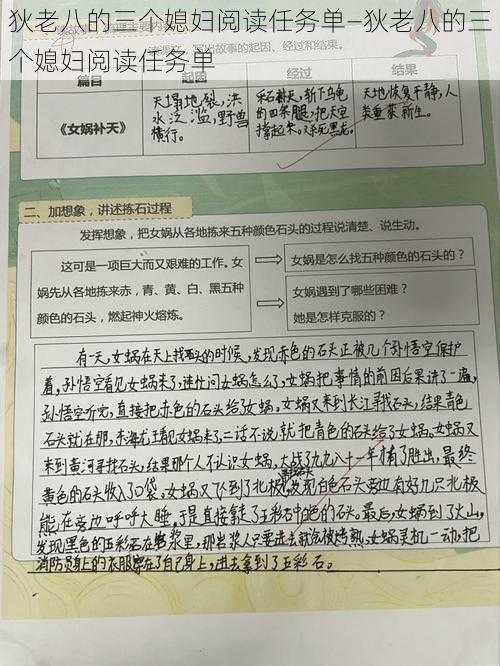 狄老八的三个媳妇阅读任务单–狄老八的三
个媳妇阅读任务单
写出故事的起因、经过和结果。
阅读篇目 起因 经过 结果
《女娲补天》
天塌地裂,洪
水泛滥,野兽
横行。
采石补天,斩了乌龟
的四条腿,把天空
撑起来。又杀死黑龙。
天地恢复平静,人
类重获新生。
二、加想象,讲述拣石过程
发挥想象,把女娲从各地拣来五种颜色石头的过程说清楚、说生动。
这可是一项巨大而又艰难的工作。女
娲先从各地拣来赤,青、黄、白、黑五种
颜色的石头,燃起神火熔炼。
女娲是怎么找五种颜色的石头的?
女娲遇到了哪些困难?
她是怎样克服的?
有一天,女娲在天上找石头的时候,发现赤色的石头正被几个孙悟空保护
着,孙悟空看见女娲来了,连忙问女娲怎么了,女娲把事情的前因后果讲了一遍,
孙悟空听完,直接把赤色的石头给了女娲。女娲又来到长江寻找石头,结果青色
石头就在那,东海龙王看见女娲来了,二话不说就把青色的石头给了女娲。女娲又
来到黄河寻找石头,结果那个人不认识女娲,大战了九九八十一年猜了胜出,最终
黄色的石头收入了口袋。女娲又飞到了北极,发刻白色石头旁边有好几只北极
熊,在旁边呼呼大睡,于是直接拿走了五彩石中白色的石头。最后,女娲到了火山,
发现黑色的五彩石在岩浆里,那岩浆人只要进去就会被烤熟,女娲灵机一动,把
消防员身上的衣服穿在了自己身上,进去拿到了五彩石。